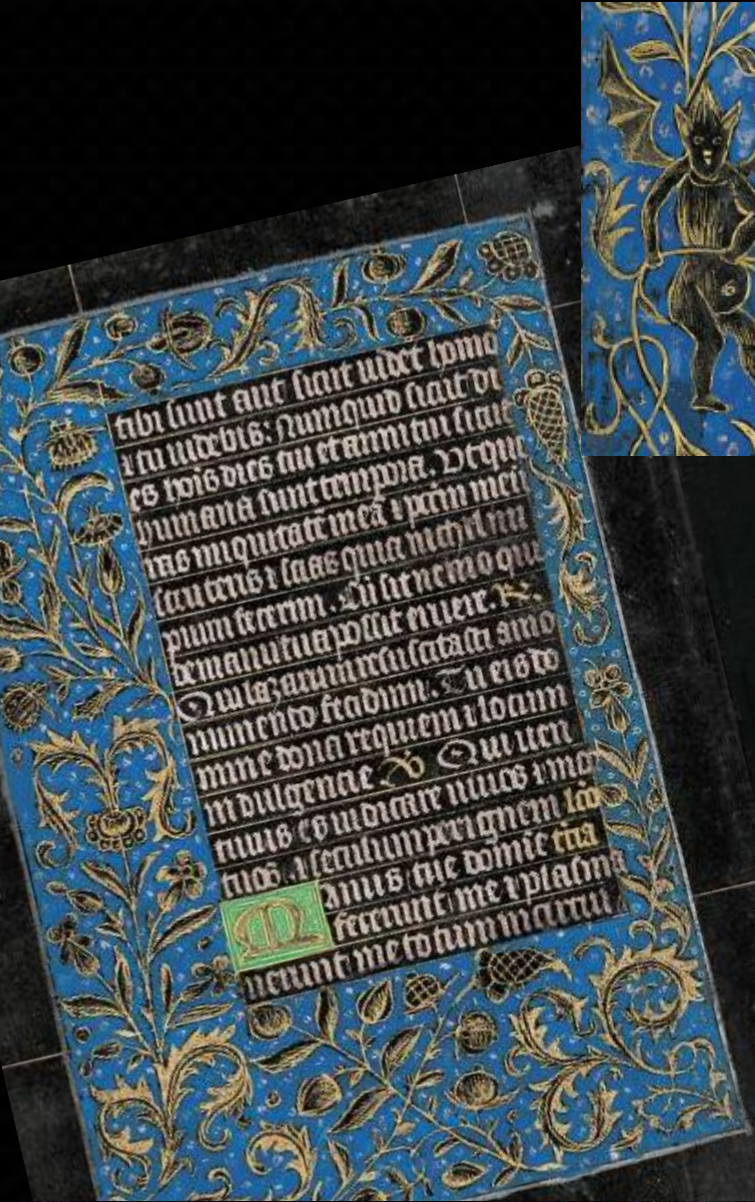 tibi sunt aut sicut uidet homo
⁊ tu uidebis: Numquid sicut di
es hōis dies tui et anni tui sicut
humana sunt tempora. Vt que
ras iniquitatē meā ⁊ pctm̄ meū
scruteris ⁊ scias quia nichil im
pium fecerim. Cū sit nemo qui
de manu tua possit eruere. R.
Qui lazarum resuscitasti a mo
numento fetidum. Tu eis do
mine dona requiem ⁊ locum
indulgencie V Qui uen
turus es iudicare uiuos ⁊ mor
tuos. ⁊ seculum per ignem lco
Manus tue domīe tcia
fecerunt me ⁊ plasma
uerunt me totum in circui